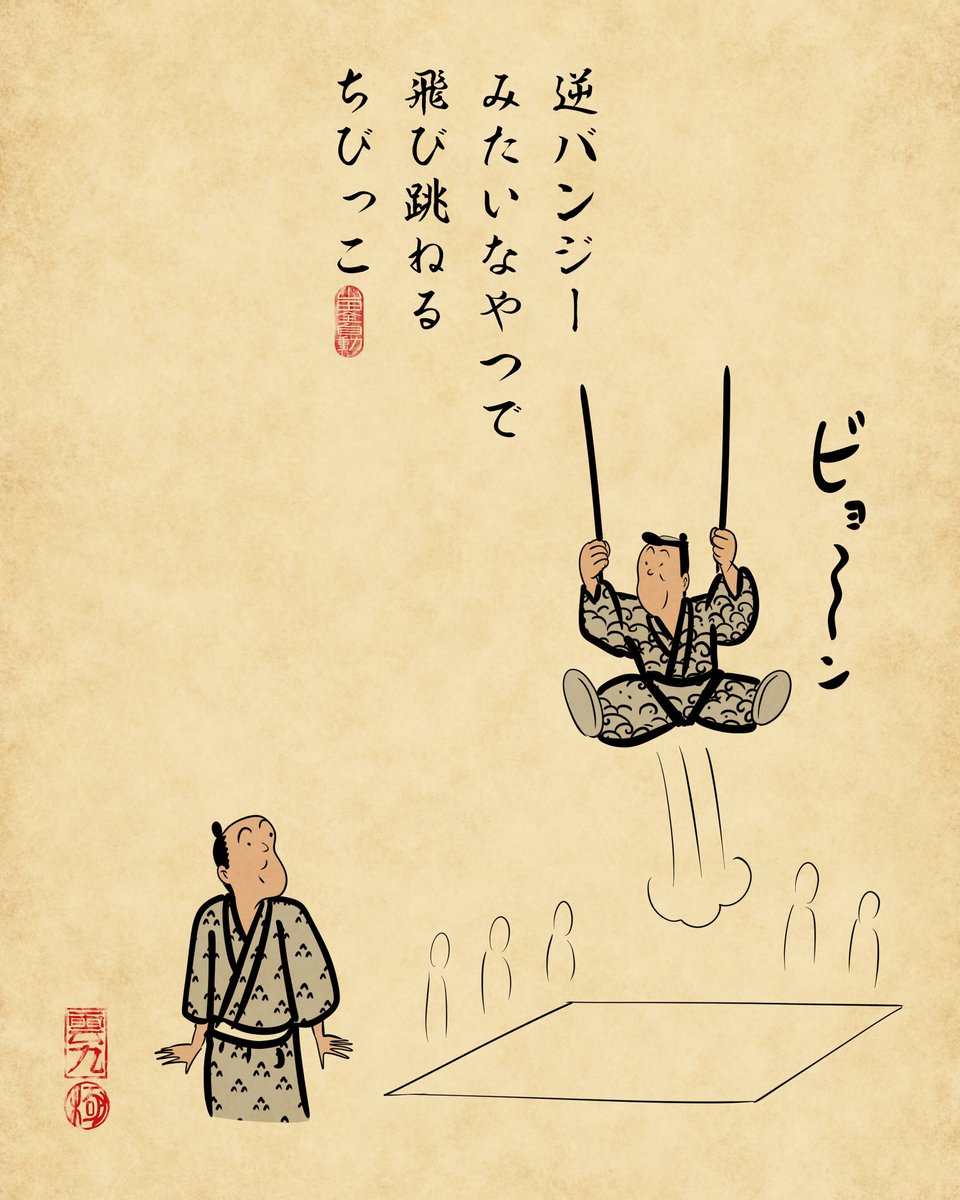 逆バンジー
みたいなやつで
飛び跳ねる
ちびっこ
ビョ〜〜ン